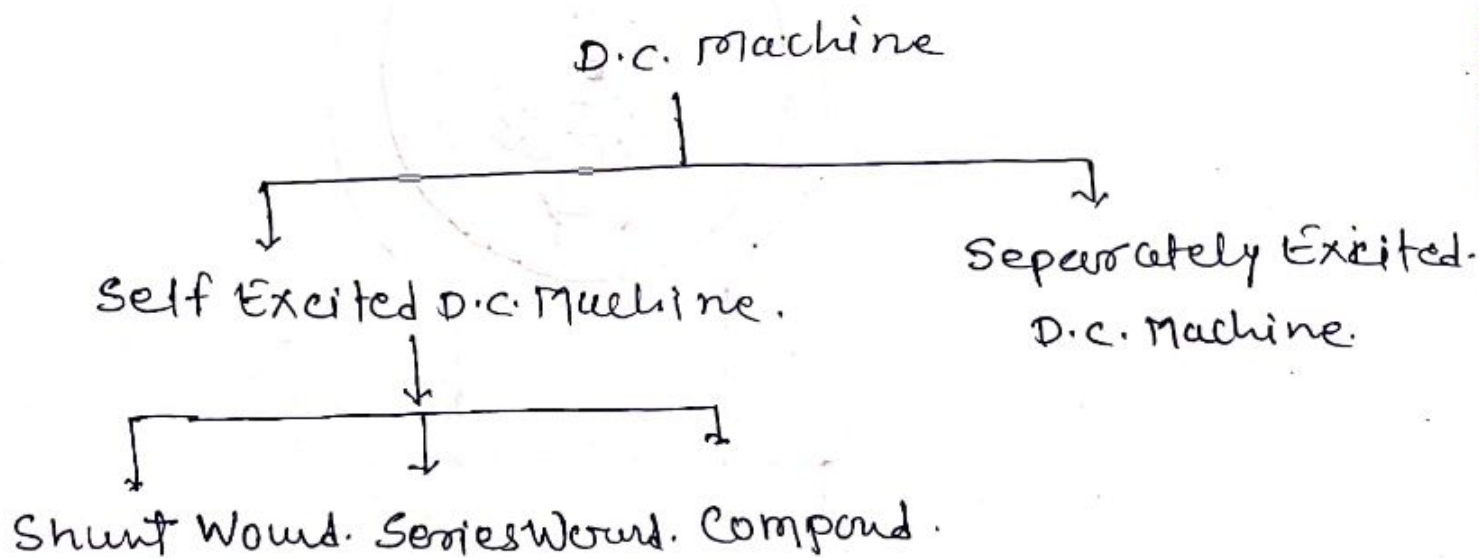 D.C. Machine
Self Excited D.C. Machine.
Separately Excited.
D.C. Machine.
Shunt Wound. Series Wound. Compond.